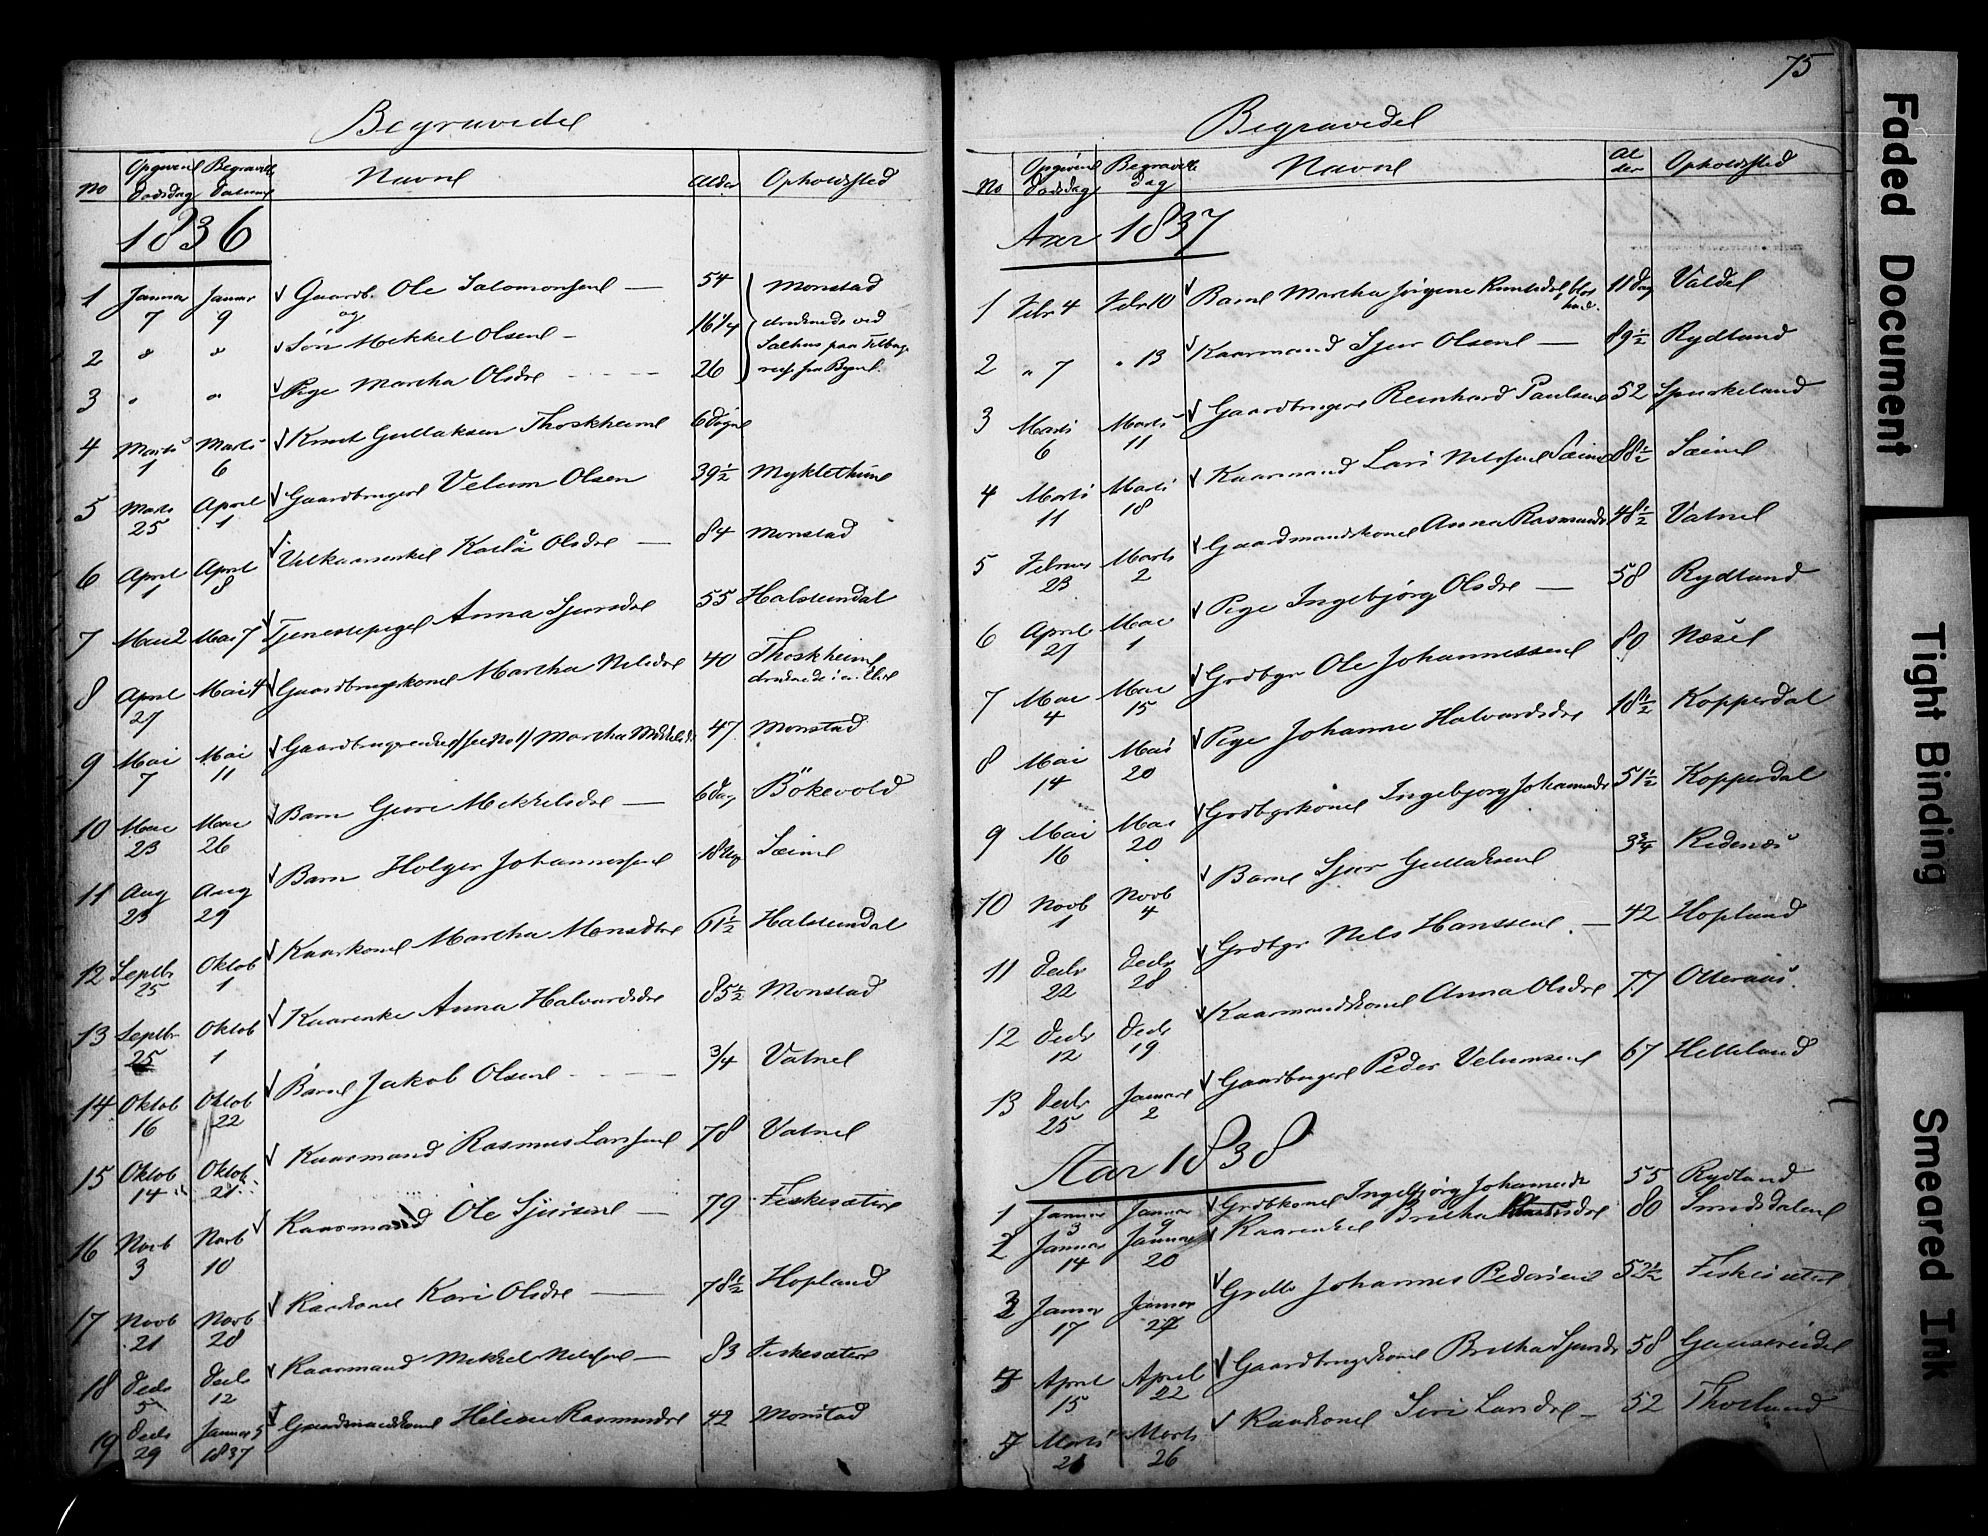 Begravede
No Opgivne Dødsdag Begravelse Datum Navne Alder Opholdssted
1836
1 Januar 7 Januar 9 Gaardb. Ole Salomonsen — 54 Monstad
og
2 " " Søn Mekkel Olsen - 16 1/4 druknede ved Sælhus paa Tilbage
3 " " Pige Martha Olsdre 26 reise fra Byen.
4 Marts 1 Marts 6 Knut Gullaksen Thoskheim 6 Døgn
5 Marts 25 April 1 Gaardbruger Velum Olsen 39 1/2 Myklethun
6 April 1 April 8 Vilkaarsenke Kari Olsdre — 84 Monstad
7 Mai 2 Mai 7 Tjenestepige Anna Sjursdre 55 Halsteindal
8 April 27 Mai 4 Gaardbrugskone Martha Nilsdre 40 Thoskheim
druknede i en Elv
9 Mai 7 Mai 11 Gaardbrugerenke (see No 1) Martha Mekkelsd. 47 Monstad
10 Mai 23 Mai 26 Barn Guri Mekkelsdre — 6 Dag Bökevold
11 Aug 23 Aug 29 Barn Holger Johannessen 18 Ug Sæim
12 Septbr 25 Oktob 1 Kaarkone Martha Monsdtre 61 1/2 Halsteindal
13 Septbr 25 Oktob 1 Kaarenke Anna Halvardsdre 85 1/2 Monstad
14 Oktob 16 Oktob 22 Barn Jakob Olsen 3/4 Vatne
15 Oktob 14 Oktob 21 Kaarmand Rasmus Larssen 78 Vatne
16 Novb 3 Novb 10 Kaarmand Ole Sjursen — 79 Fiskesæter
17 Novb 21 Novb 28 Kaarkone Kari Olsdre — 78 1/2 Hopland
18 Decb 5 Decb 12 Kaarmand Mekkel Nilssen — 83 Fiskesæter
19 Decb 29 Januar 5 1837 Gaardmandskone Helene Rasmusdre 42 Monstad
75
Begravede
No Opgivne Dødsdag Begravelse Dag Navne Alder Opholdssted
Aar 1837
1 Febr 4 Febr 10 Barn Martha Jørgine Knutsdre 11 Dag Valde
2 " 7 " 13 Kaarmand Sjur Olsen — 89 1/2 Rydland
3 Marts 6 Marts 11 Gaardbruger Reinhard Paulsen 52 Spurkeland
4 Marts 11 Marts 18 Kaarmand Lars Nilssen Sæim 88 1/2 Sæim
5 Februar 23 Marts 2 Gaardmandskone Anna Rasmusdr 48 1/2 Vatne
6 April 27 Mai 1 Pige Ingebjørg Olsdre — 58 Rydland
7 Mai 4 Mai 15 Grdbgr Ole Johannessen 80 Næse
8 Mai 14 Mai 20 Pige Johanne Halvardsdre 18 1/2 Kopperdal
9 Mai 16 Mai 20 Grdbgrkone Ingebjorg Johannesdr 51 1/2 Kopperdal
10 Novb 1 Novb 4 Barn Sjur Gullaksen 3 3/4 Risenæs
11 Decbr 22 Decbr 28 Grdbgr Nels Hanssen — 42 Hopland
12 Decbr 12 Decbr 19 Kaarmandskone Anna Olsdre 77 Otteraas
13 Decbr 25 Januar 2 Gaardbruger Peder Velumsen 67 Helleland
Aar 1838
1 Januar 3 Januar 9 Grdbkone Ingebjørg Johannesdr 55 Rydland
2 Januar 14 Januar 20 Kaarenke Britha 80 Smedsdalen
3 Januar 17 Januar 24 Grdb Johannes Pedersen 52 1/2 Fiskesæter
4 April 15 April 22 Gaardbrugskone Britha Sjursdr 58 Gunstveidel
5 Marts 21 Marts 26 Kaarkone Siri Larsdre — 52 Thorland
Faded Document
Tight Binding
Smeared Ink